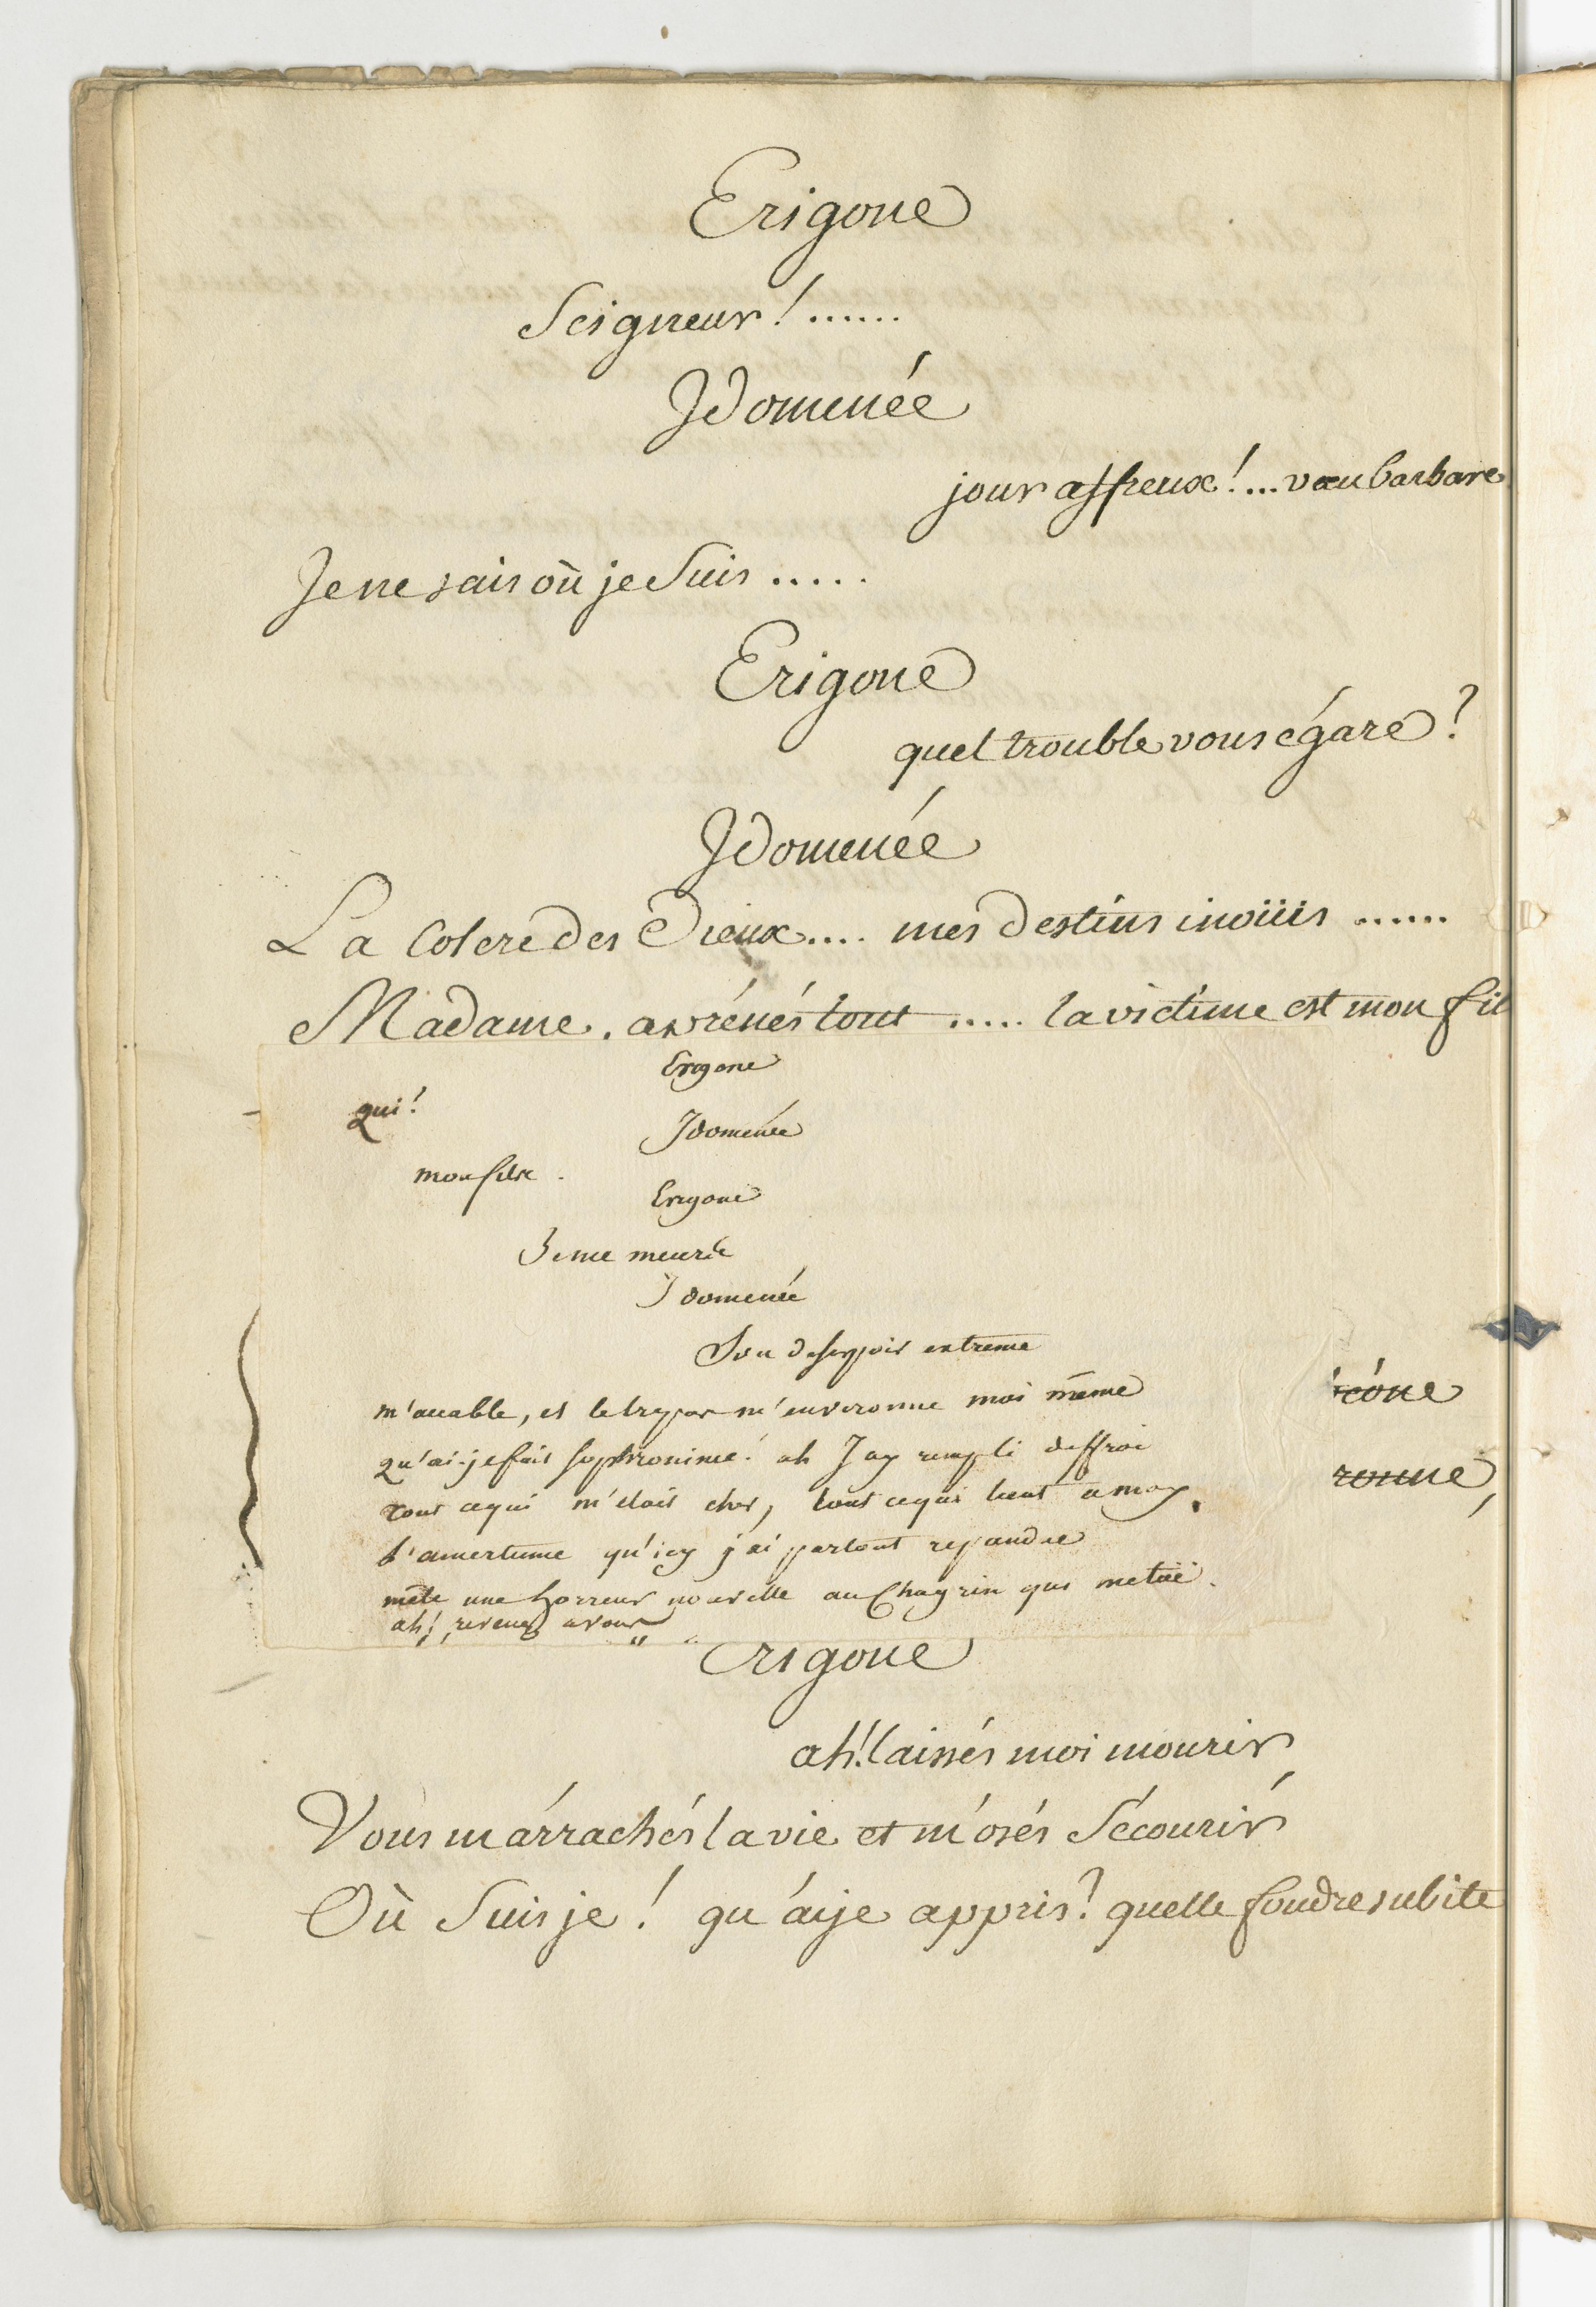 Erigone
Seigneur! ......
Jdomenée
jour affreux! ... vœu barbare
Je ne sais où je suis .....
Erigone
quel trouble vous égare?
Jdomenée
La Colere des Dieux .... mes destins inoüis ......
Madame, aprénés tout ..... la victime est mon fil
Erigone
qui!
Jdomenée
mon fils.
Erigone
Je me meurs
Jdomenée
Son desespoir extreme
m'accable, et le trepas m'environne moi même
qu'ai-je fait sophronime! ah J'ay rempli d'effroi
icóne
tout ce qui m'étoit cher, tout ce qui tient a moy.
ronne,
l'amertume qu'icy j'ai partout repandue
mêle une horreur nouvelle au Chagrin qui me tüe.
ah! revenez a vous
Erigone
ah! laissés moi mourir
Vous m'árrachés la vie et m'osés Sécourir
Où Suis je! qu'áije appris? quelle foudre subite